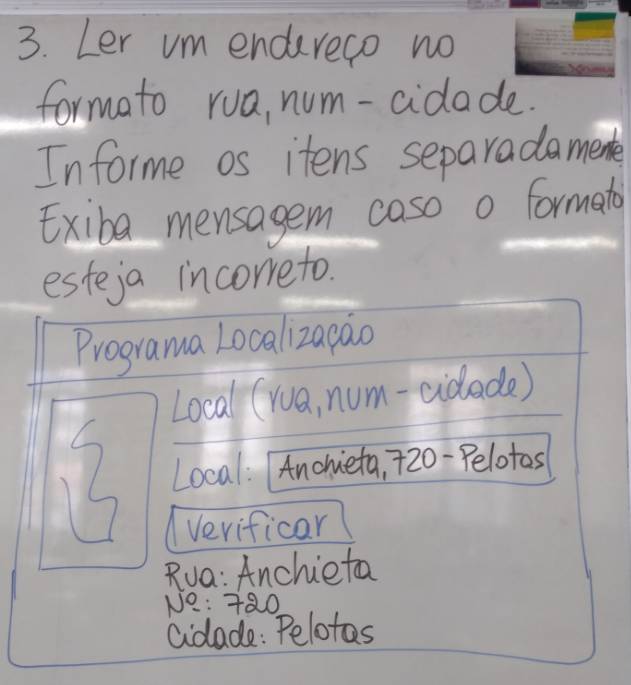 3. Ler um endereço no
formato rua, num - cidade.
Informe os itens separadamente
Exiba mensagem caso o formato
esteja incorreto.
Programa Localização
Local (rua, num - cidade)
Local: Anchieta, 720 - Pelotas
Verificar
Rua: Anchieta
Nº: 720
Cidade: Pelotas